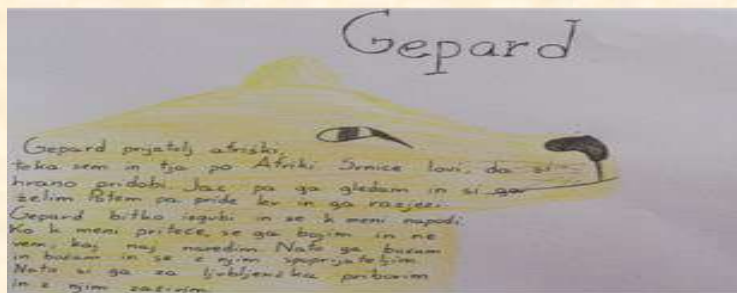 Gepard
Gepard prijatelj afriški,
teka sem in tja po Afriki Srnice lovi, da si
hrano pridobi. Jaz pa ga gledam in si ga
želim Potem pa pride lev in ga razjezi.
Gepard bitko izgubi in se k meni napodi.
Ko k meni priteče, se ga bojim in ne
vem, kaj naj naredim Nato ga bucam
in bucam in se z njim spoprijateljim.
Nato si ga za ljubljenčka priborim
in z njim zaživim.